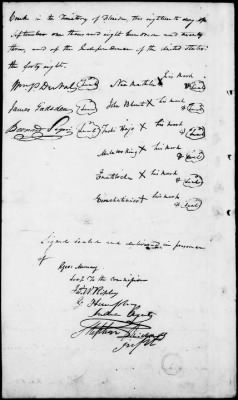 Creek in the Territory of Florida, this eighteenth day of
September one thousand eight hundred and twenty
three, and of the Independence of the United States
the forty eighth.
Wm P Duval (Seal)
James Gadsden (Seal)
Bernard Segui (Seal)
his mark & (Seal)
John Blunt X his mark & (Seal)
Tuski Hajo X his mark & (Seal)
Mulatto King X his mark & (Seal)
X his mark & (Seal)
Econchatimico X his mark & (Seal)
Signed sealed and delivered in presence
of
Geo: Murray
Secy To the Commission
G Humphreys
Indian Agent
Stephen Richards